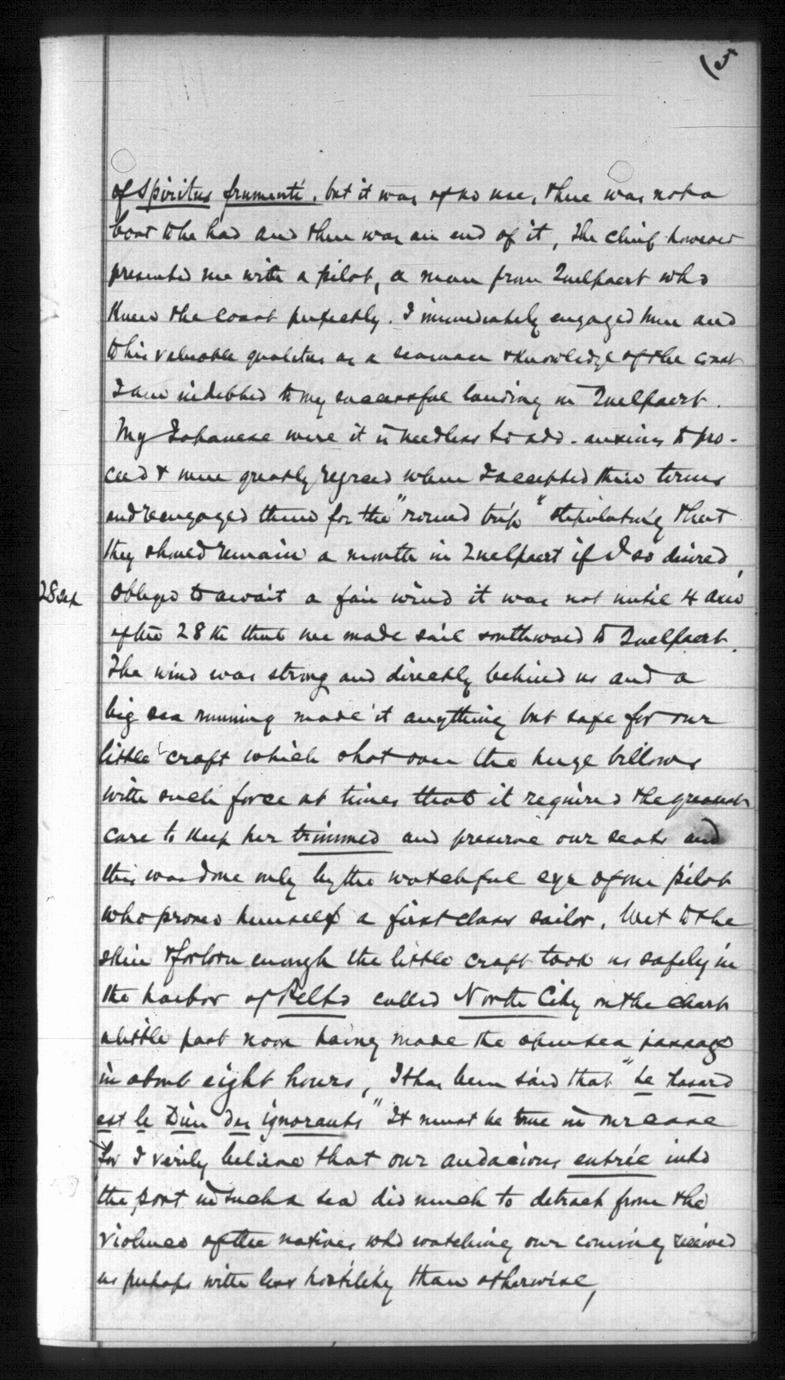 (5
of Spiritus frumenti, but it was of no use, there was not a
boat to be had and there was an end of it, The chief however
presented me with a pilot, a man from Quelpaert who
knew the coast perfectly. I immediately engaged him and
to his valuable qualities as a seaman & knowledge of the coast
I am indebted to my successful landing in Quelpaert.
My Japanese were it is needless to add - anxious to pro-
ceed & were greatly when I accepted their terms
and reengaged them for the "round trip" stipulating that
they should remain a month in Quelpaert if I so desired,
28 Sep
Obliged to await a fair wind it was not until 4 am
of the 28th that we made sail southward to Quelpaert.
The wind was strong and directly behind us and a
big sea running made it anything but safe for our
little craft which shot over the huge billows
with such force at times that it required the greatest
care to keep her trimmed and preserve our seats and
this was done only by the watchful eye of our pilot
who proved himself a first class sailor. Wet to the
skin & forlorn enough the little craft took us safely in
the harbor of called North City on the chart
a little past noon having made the open sea passage
in about eight hours, It has been said that "le hasard
est le Dieu des ignorants" It must be true in our case
for I verily believe that our audacious entrée into
the port in such a sea did much to detract from the
violence of the natives who watching our coming received
us perhaps with less hostility than otherwise,